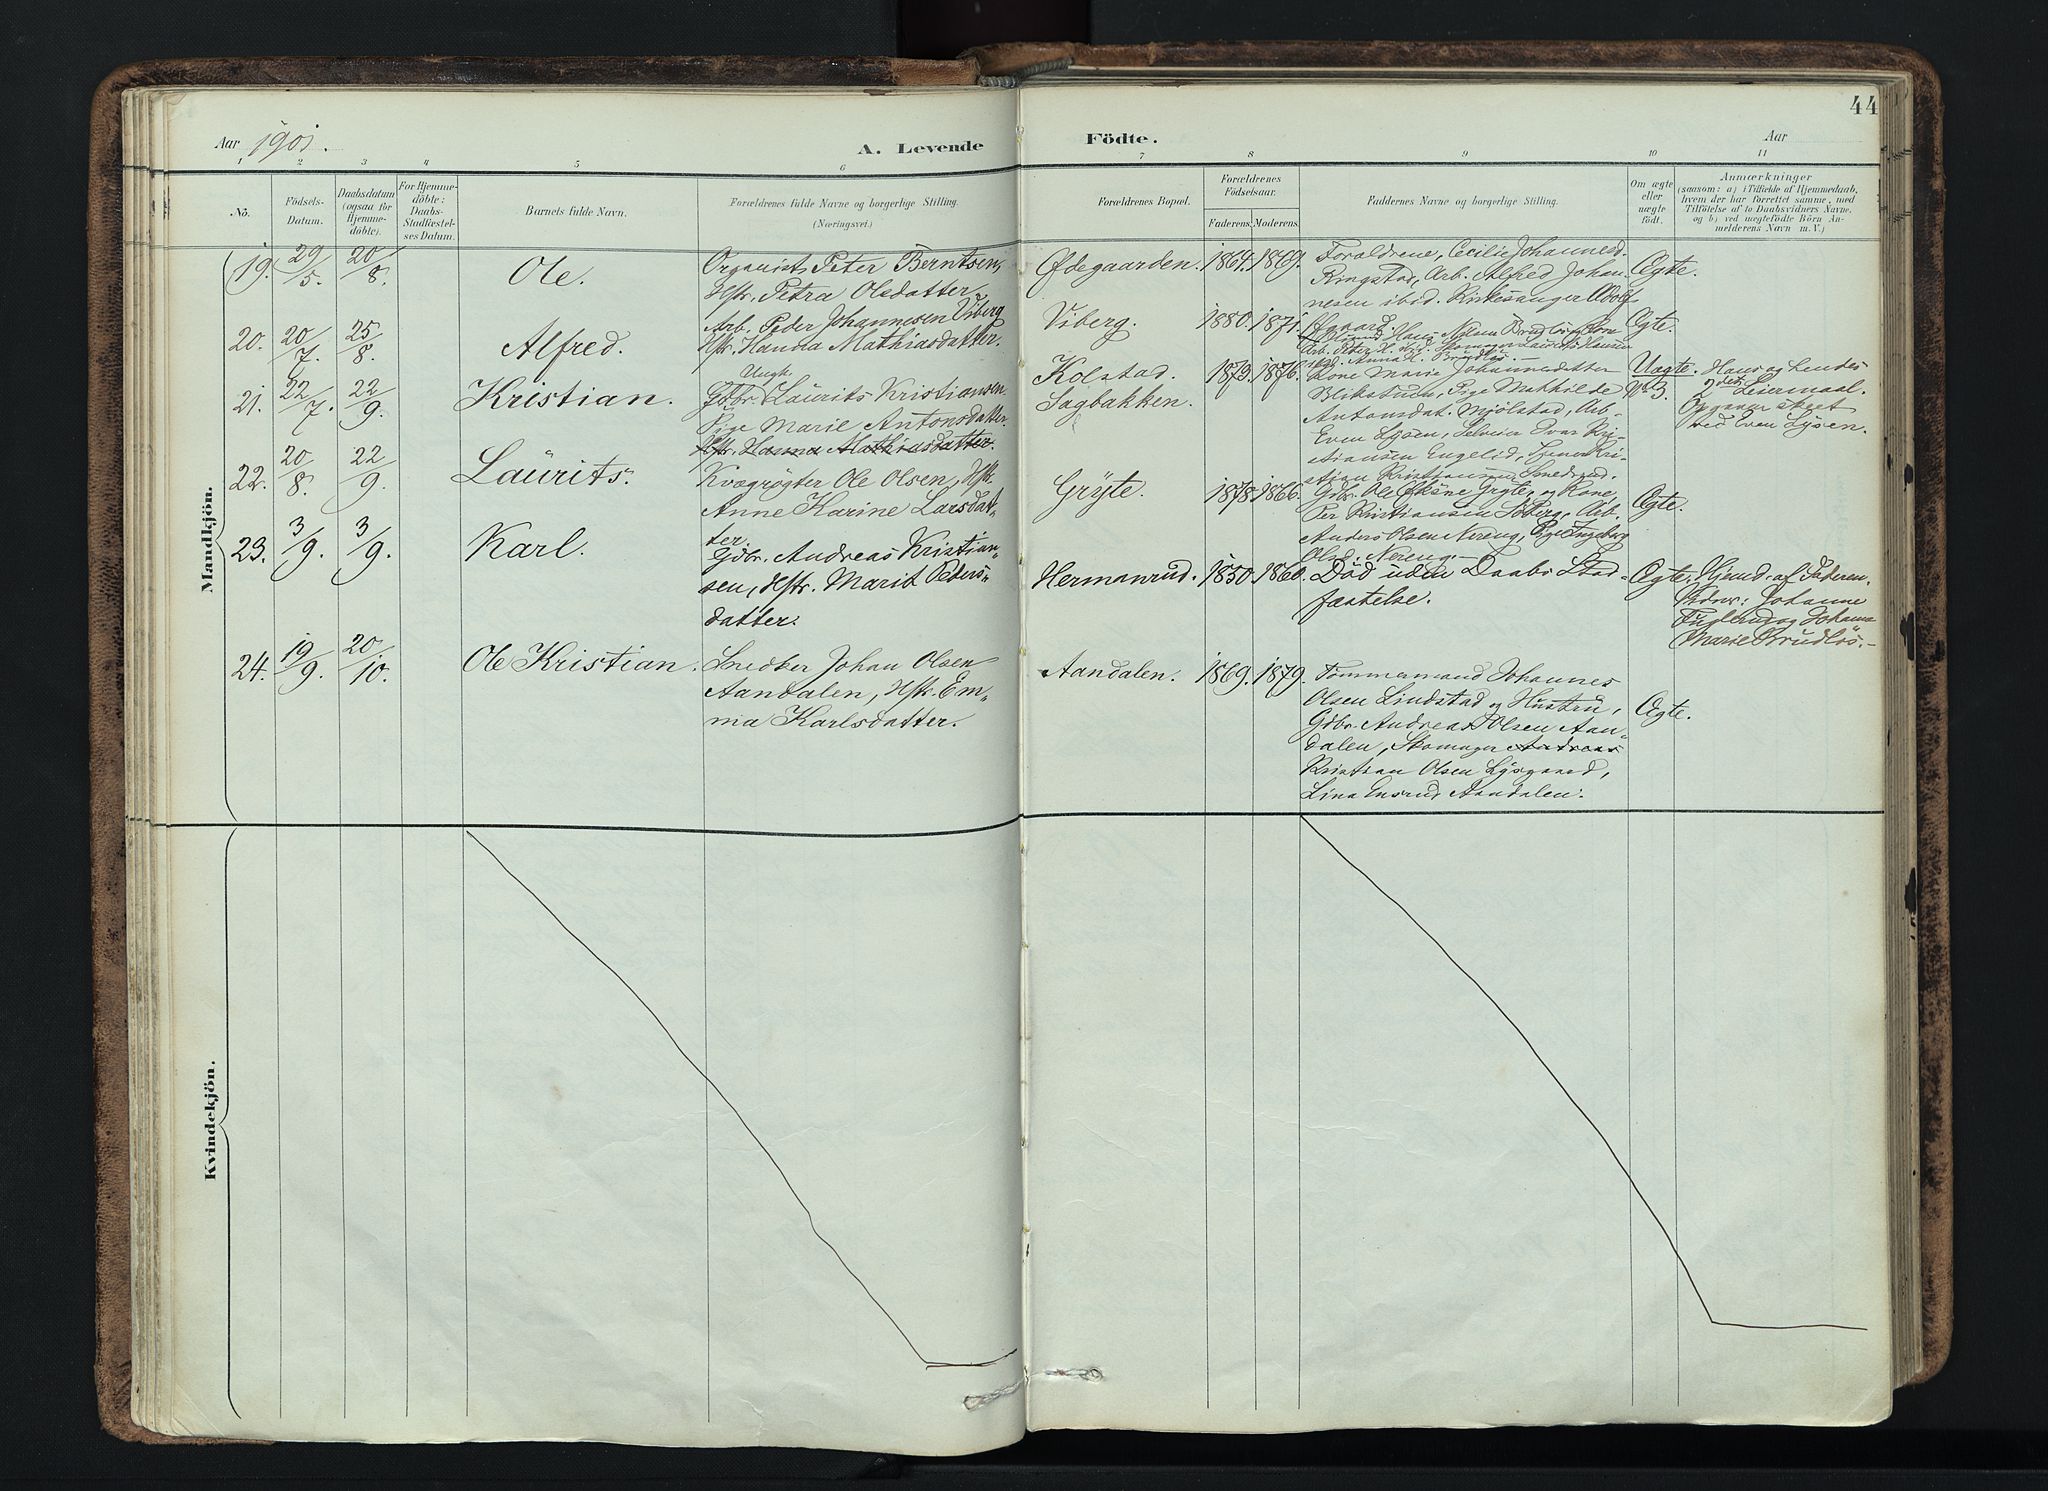 44
Aar 1901.
A. Levende Födte.
Aar
1 2 3 4 5 6 7 8 9 10 11
No.
Födsels-Datum.
Daabsdatum (ogsaa for Hjemmedöbte).
For Hjemmedöbte: Daabs-Stadfæstelses Datum.
Barnets fulde Navn.
Forældrenes fulde Navne og borgerlige Stilling.
(Næringsvei.)
Forældrenes Bopæl.
Forældrenes Födselsaar.
Faderens. Moderens.
Faddernes Navne og borgerlige Stilling.
Om ægte eller uægte födt.
Anmærkninger
(saasom: a) i Tilfælde af Hjemmedaab, hvem der har forrettet samme, med Tilföielse af to Daabsvidners Navne, og b) ved uægtefödte Börn Anmelderens Navn m.V.)
Mandkjön.
19. 29/5. 20/8. Ole.
Organist Peter Berntsen,
Hstr. Petra Olsdatter
Ødegaarden. 1864. 1869.
Foraldrene, Cecilie Johannesd.
Ringstad, Arb. Alfred Johan
nesen ibid. Kirkesanger Adolf
Ægte.
20. 20/7. 25/8. Alfred.
Arb. Peder Johannesen Viberg
Hstr. Hanna Mathiasdatter.
Viberg. 1880. 1871.
Ægte.
21. 22/7. 22/9. Kristian.
Ungk.
Gdbr. Laurits Kristiansen
Pige Marie Antonsdatter.
Hstr. Hanna Mathiasdatter.
Kolstad.
Sagbakken.
1879. 1876.
Kone Marie Johannesdatter
Blikstuen, Pige Mathilde
Antonsdat. Mjölstad, Arb.
Even Lysen, Selveier Ivar Kri-
stiansen Engelid,
Uægte.
No 3.
Hans og hendes
2det Leiermaal.
Opgaven skeet
ved Even Lysen.
22. 20/8. 22/9. Laurits.
Kvægrögter Ole Olsen, Hstr.
Anne Karine Larsdat-
ter.
Gryte. 1878. 1866.
Gdbr. Ole Öksne Gryte, og Kone,
Per Kristiansen Soberg, Arb.
Anders Olsen Nereng, Pige Ingeborg
Olsd. Nereng.
Ægte.
23. 3/9. 3/9. Karl.
Gdbr. Andreas Kristian-
sen, Hstr. Marit Peders-
datter.
Hermanrud. 1850. 1860.
Död uden Daabs Stad-
fæstelse.
Ægte.
Hjemd. af Faderen.
Vidner: Johanne
Fuglerud og Johanne
Marie Brudlös.
24. 19/9. 20/10. Ole Kristian.
Snedker Johan Olsen
Aandalen, Hstr. Em-
ma Karlsdatter.
Aandalen. 1869. 1879.
Tömmermand Johannes
Olsen Lindstad og Hustru,
Gdbr. Andreas Olsen Aan-
dalen, Skomager Andreas
Kristian Olsen Lysgaard,
Lina Ensrud Aandalen.
Ægte.
Kvindekjön.